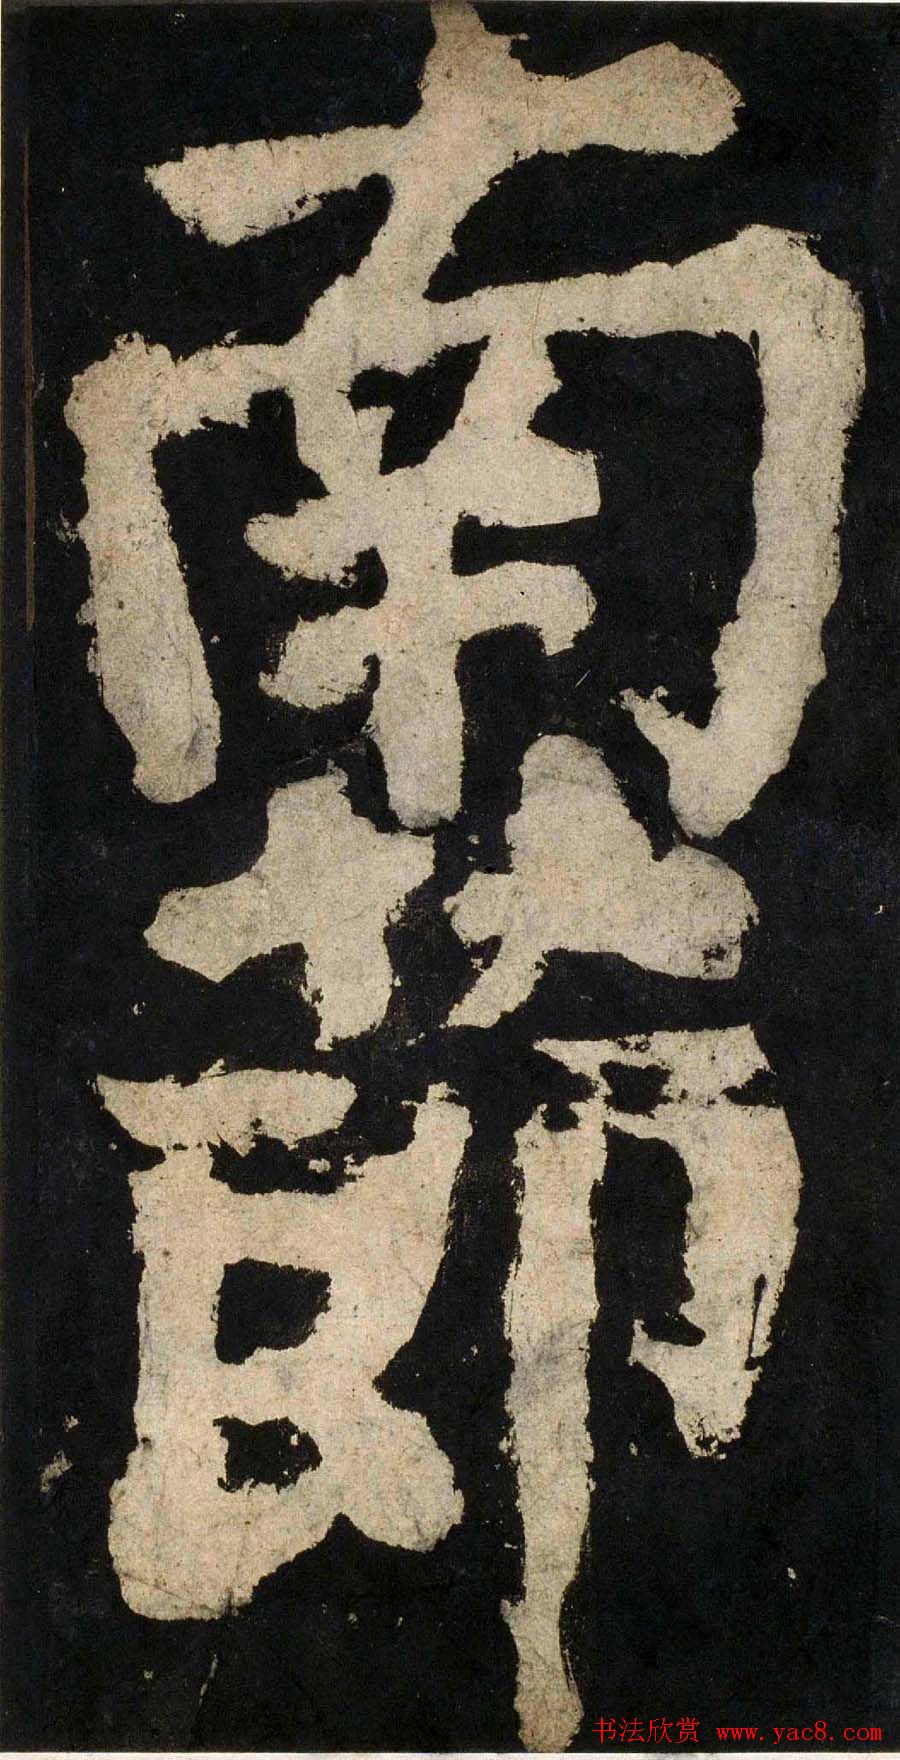 南節
书法欣赏 www.yac8.com